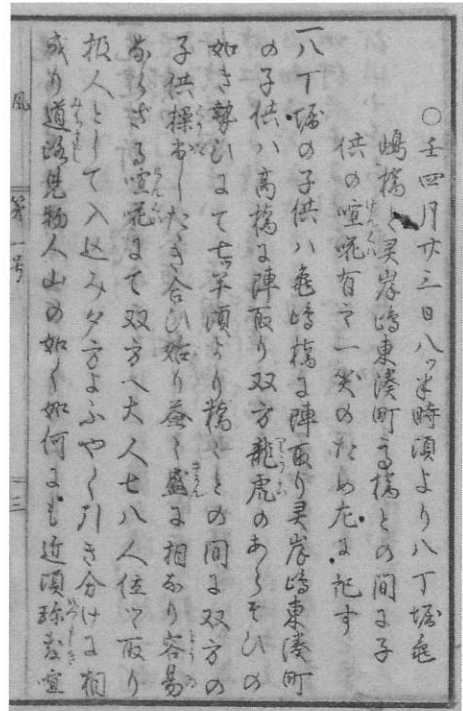 ○壬四月廿三日八ッ半時頃より八丁堀亀
嶋橋と灵岸嶋東湊町高橋との間に子
供の喧嘩有之一笑のため左に記す
一八丁堀の子供ハ亀嶋橋に陣取り灵岸嶋東湊町
の子供ハ高橋に陣取り双方龍虎のあらそひの
如き勢ひにて七ッ半頃より橋々との間に双方の
子供操出したき合ひ始り益々盛に相なり容易
ならざる喧嘩にて双方へ大人七八人位ツヽ取り
扱人として入込み夕方よふやく引き分けに相
成り道路見物人山の如く如何にも近頃珍敷喧
風 第一号 三